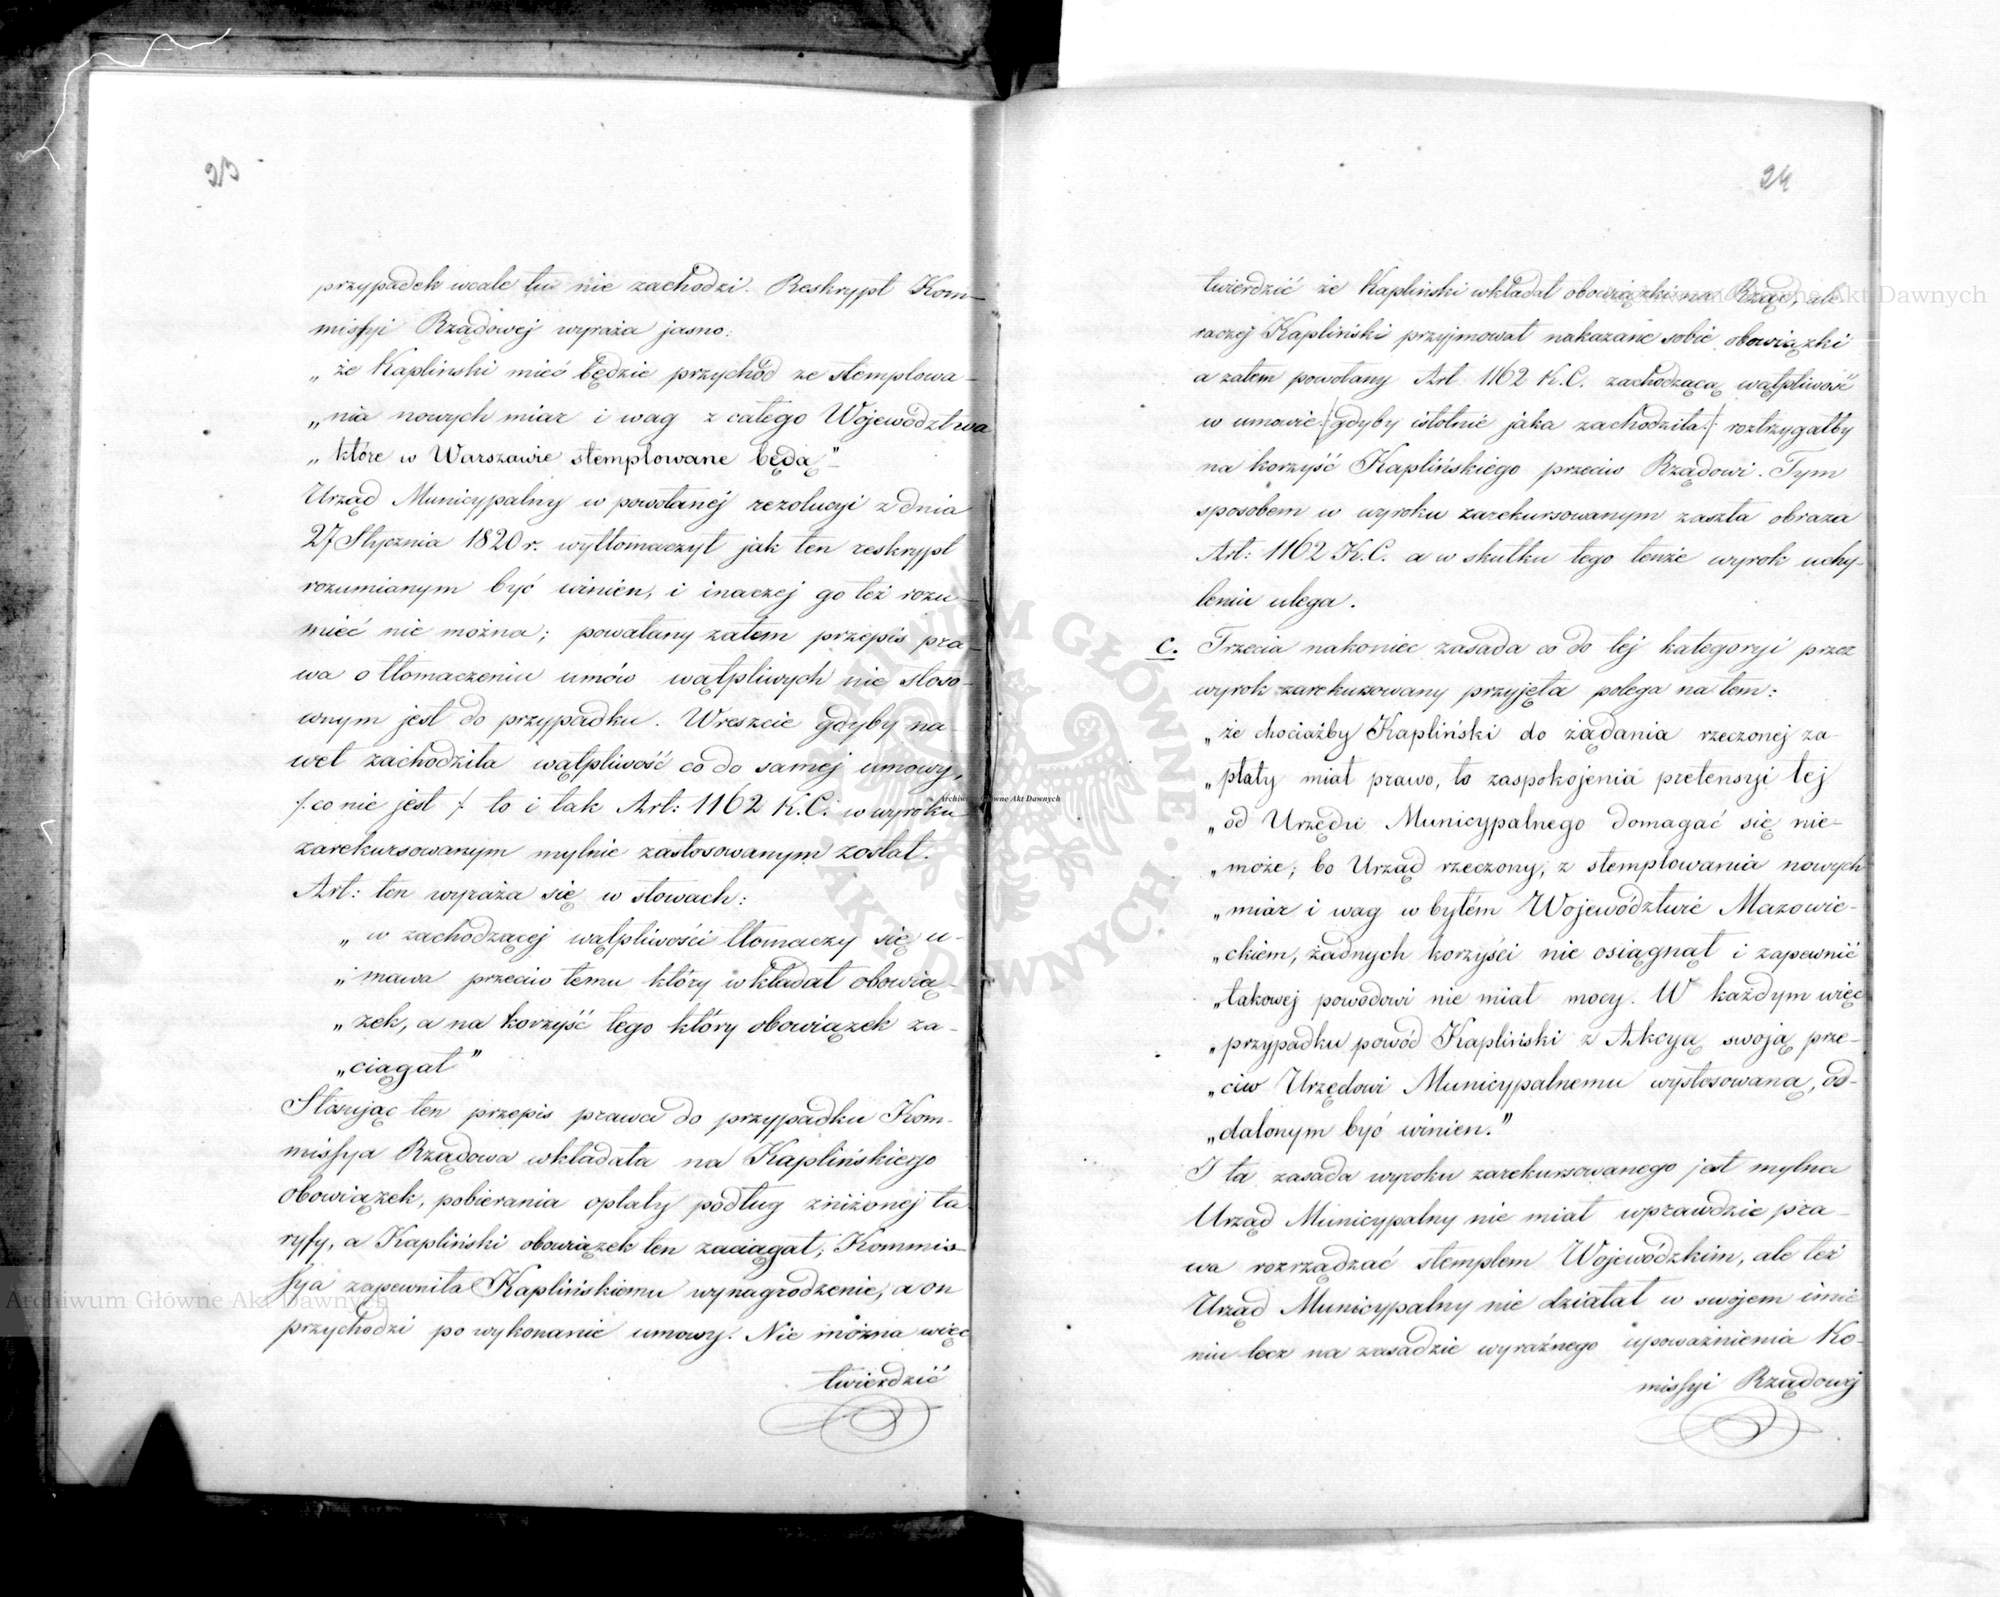 23
przypadek wcale tu nie zachodzi. Reskrypt Kom-
missyi Rządowej wyraża jasno:
„że Kapliński mieć będzie przychód ze stemplowa-
„nia nowych miar i wag z całego Województwa
„które w Warszawie stemplowane będą"
Urząd Municypalny w powołanej rezolucyi z dnia
27 Stycznia 1820 r. wytłomaczył jak ten reskrypt
rozumianym być winien, i inaczej go też rozu-
mieć nie można; powołany zatem przepis pra-
wa o tłomaczeniu umów wątpliwych nie stoso-
wnym jest do przypadku. Wreszcie gdyby na-
wet zachodziła wątpliwość co do samej umowy,
/: co nie jest :/ to i tak Art: 1162 K.C. w wyroku
zarekursowanym mylnie zastosowanym został.
Art: ten wyraża się w słowach:
„w zachodzącej wątpliwości tłomaczy się u-
„mowa przeciw temu który wkładał obowią-
„zek, a na korzyść tego który obowiązek za-
„ciągał"
Stosując ten przepis prawa do przypadku Kom-
missya Rządowa wkładała na Kaplińskiego
obowiązek, pobierania opłaty podług zniżonej ta-
ryfy, a Kapliński obowiązek ten zaciągał; Kommis-
sya zapewniła Kaplińskiemu wynagrodzenie, a on
przychodzi po wykonanie umowy. Nie można więc
twierdzić
24
twierdzić że Kapliński wkładał obowiązki na Rząd, ale
raczej Kapliński przyjmował nakazane sobie obowiązki
a zatem powołany Art. 1162 K.C. zachodzącą wątpliwość
w umowie /:gdyby istotnie jaka zachodziła:/ roztrzygałby
na korzyść Kaplińskiego przeciw Rządowi. Tym
sposobem w wyroku zarekursowanym zaszła obraza
Art: 1162 K.C. a w skutku tego tenże wyrok uchy-
leniu ulega.
C. Trzecia nakoniec zasada co do tej kategoryi przez
wyrok zarekursowany przyjęta polega na tem:
„że chociażby Kapliński do żądania rzeczonej za-
„płaty miał prawo, to zaspokojenia pretensyi tej
„od Urzędu Municypalnego domagać się nie-
„może; bo Urząd rzeczony, z stemplowania nowych
„miar i wag w byłém Województwie Mazowie-
„ckiem, żadnych korzyści nie osiągnął i zapewnić
„takowej powodowi nie miał mocy. W każdym więc
„przypadku powód Kapliński z Akcyą swoją prze-
„ciw Urzędowi Municypalnemu wystosowaną, od-
„dalonym być winien."
I ta zasada wyroku zarekursowanego jest mylna
Urząd Municypalny nie miał wprawdzie pra-
wa rozrządzać stemplem Wojewódzkim, ale też
Urząd Municypalny nie działał w swojem imie
niu lecz na zasadzie wyraźnego upoważnienia Ko-
missyi Rządowej
Archiwum Główne Akt Dawnych
Archiwum Główne Akt Dawnych
Archiwum Główne Akt Dawnych
ARCHIWUM GŁÓWNE AKT DAWNYCH